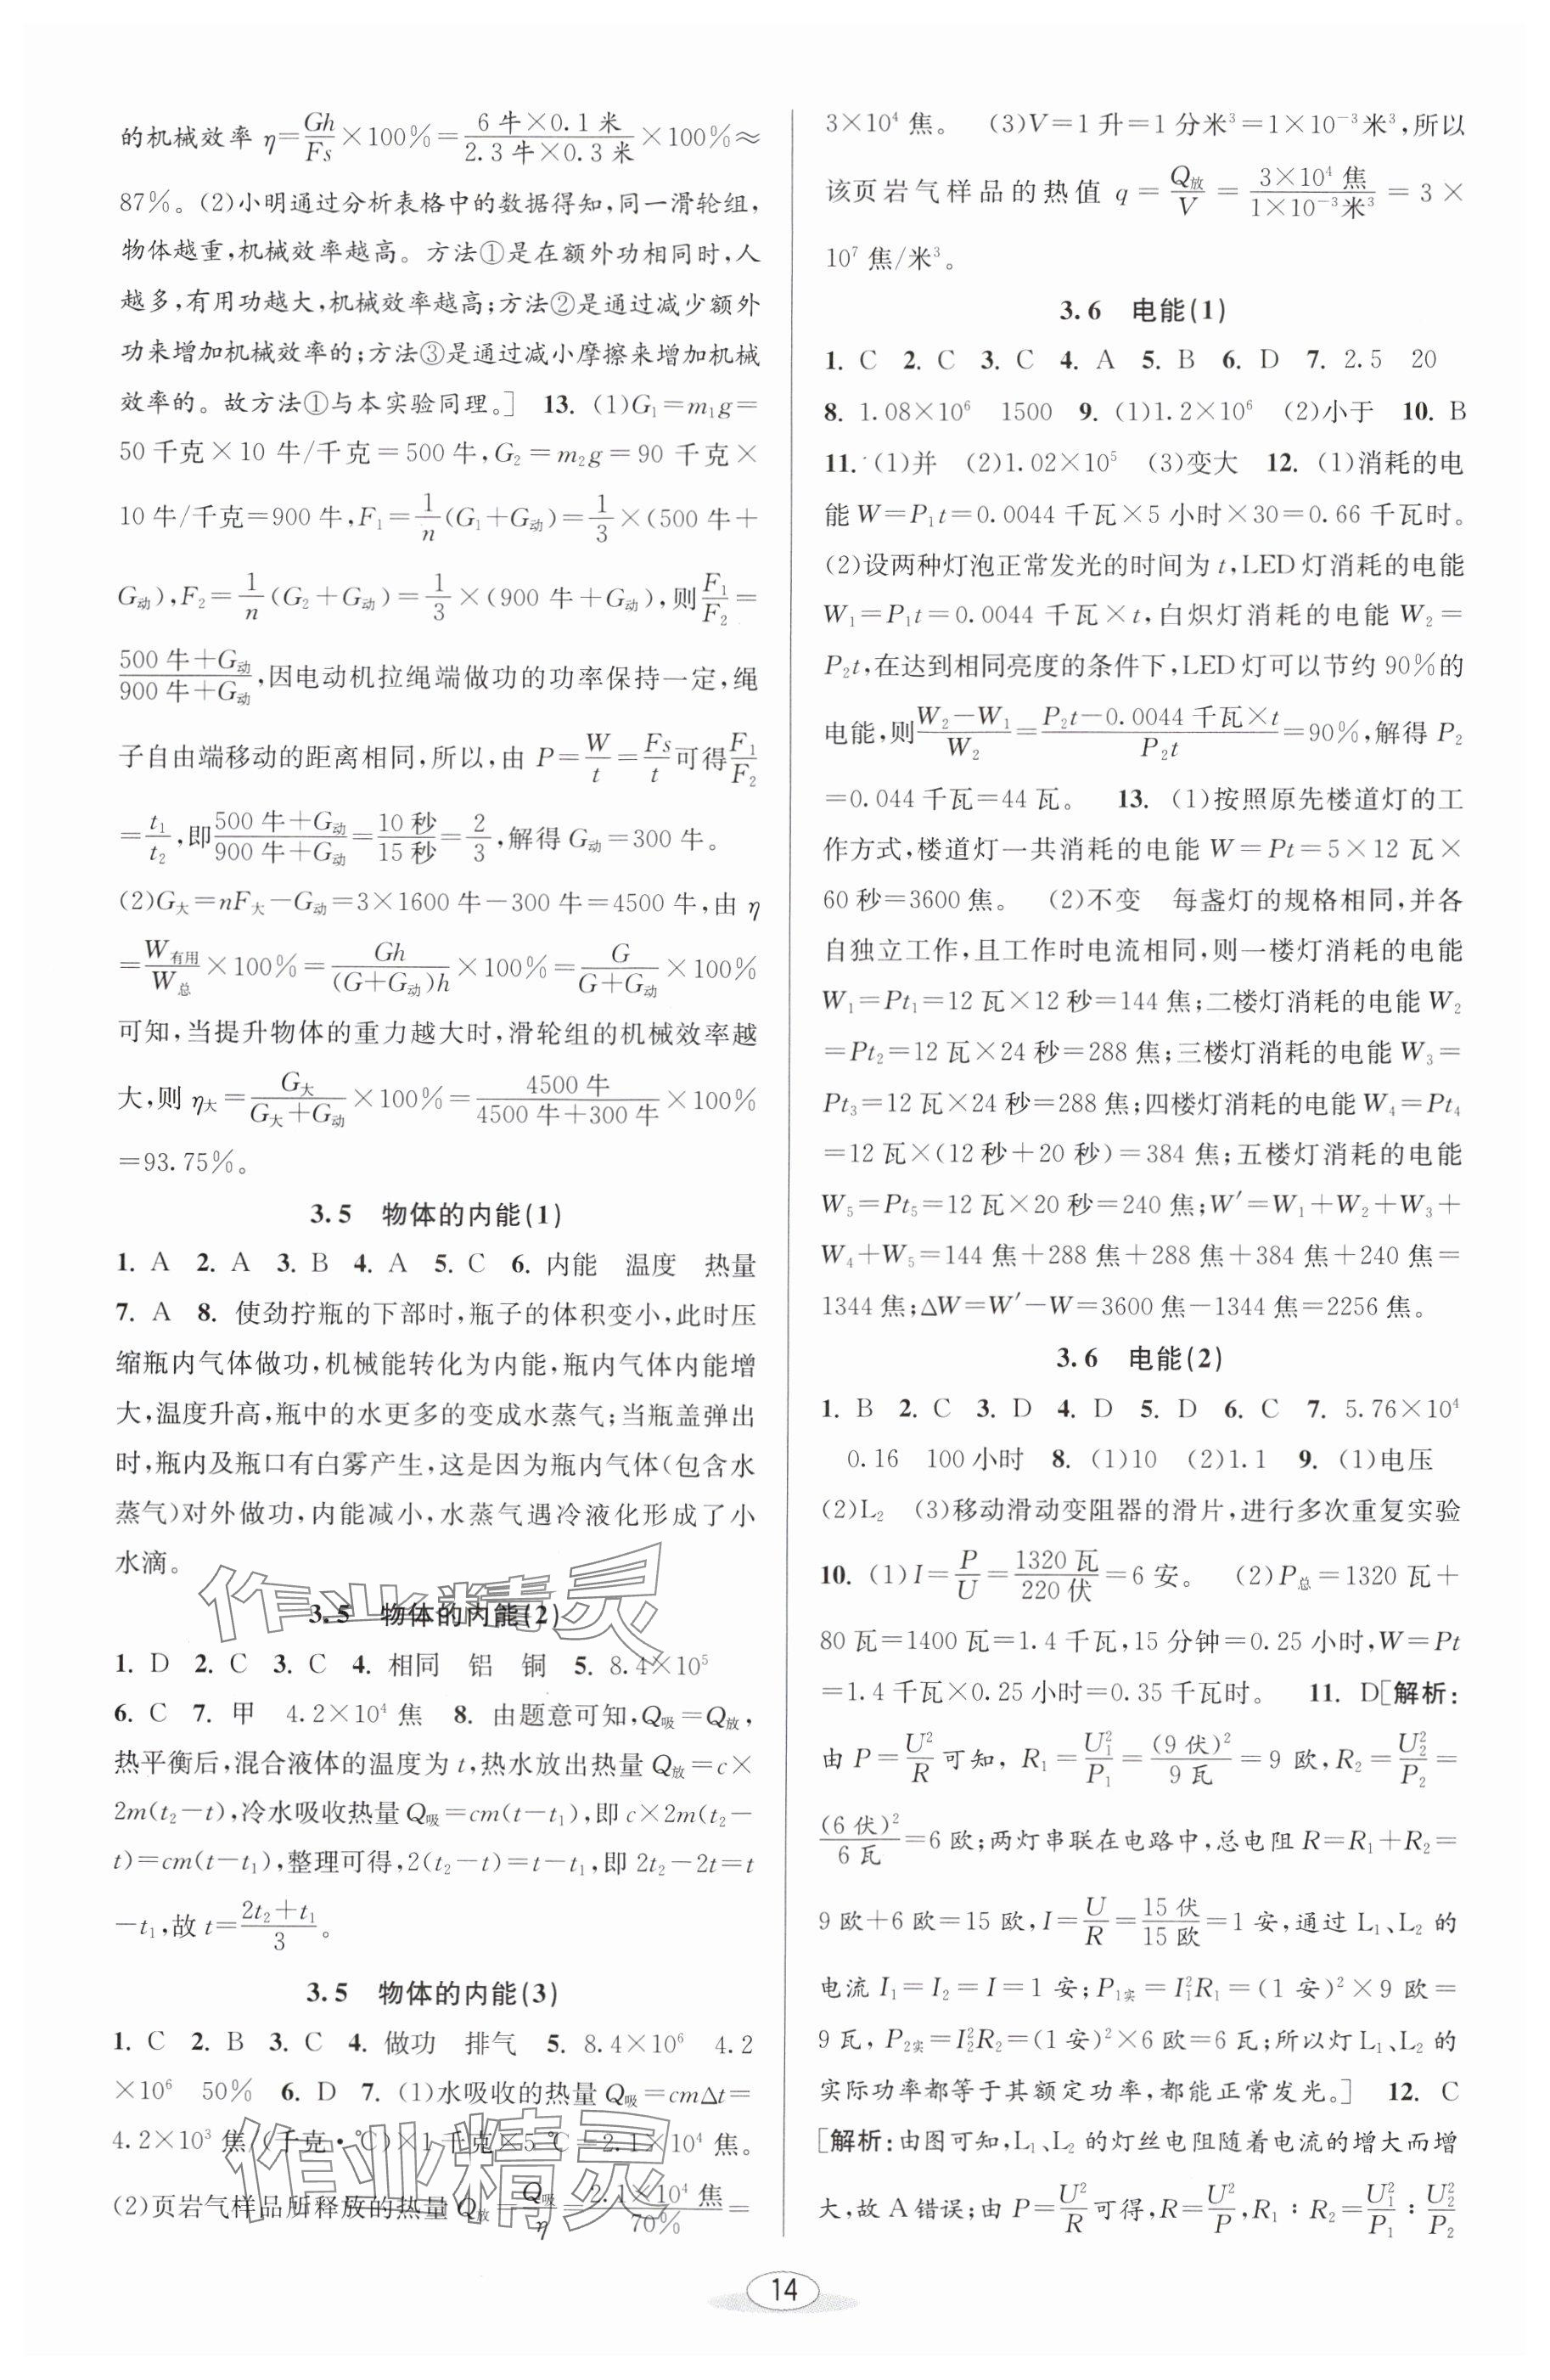 的机械效率 η=Gh/Fs×100%=6 牛×0.1 米/2.3 牛×0.3 米×100%≈
87%。(2)小明通过分析表格中的数据得知,同一滑轮组,
物体越重,机械效率越高。方法①是在额外功相同时,人
越多,有用功越大,机械效率越高;方法②是通过减少额外
功来增加机械效率的;方法③是通过减小摩擦来增加机械
效率的。故方法①与本实验同理。] 13. (1)G₁=m₁g=
50 千克×10 牛/千克=500 牛,G₂=m₂g=90 千克×
10 牛/千克=900 牛,F₁=1/n(G₁+G动)=1/3×(500 牛+
G动),F₂=1/n(G₂+G动)=1/3×(900 牛+G动),则F₁/F₂=
500 牛+G动/900 牛+G动,因电动机拉绳端做功的功率保持一定,绳
子自由端移动的距离相同,所以,由 P=W/t=Fs/t可得F₁/F₂
=t₁/t₂,即500 牛+G动/900 牛+G动=10 秒/15 秒=2/3,解得 G动=300 牛。
(2)G大=nF大-G动=3×1600 牛-300 牛=4500 牛,由 η
=W有用/W总×100%=Gh/(G+G动)h×100%=G/G+G动×100%
可知,当提升物体的重力越大时,滑轮组的机械效率越
大,则 η大=G大/G大+G动×100%=4500 牛/4500 牛+300 牛×100%
=93.75%。
3.5 物体的内能(1)
1. A 2. A 3. B 4. A 5. C 6. 内能 温度 热量
7. A 8. 使劲拧瓶的下部时,瓶子的体积变小,此时压
缩瓶内气体做功,机械能转化为内能,瓶内气体内能增
大,温度升高,瓶中的水更多的变成水蒸气;当瓶盖弹出
时,瓶内及瓶口有白雾产生,这是因为瓶内气体(包含水
蒸气)对外做功,内能减小,水蒸气遇冷液化形成了小
水滴。
作业精灵
3.5 物体的内能(2)
1. D 2. C 3. C 4. 相同 铝 铜 5. 8.4×10⁵
6. C 7. 甲 4.2×10⁴ 焦 8. 由题意可知,Q吸=Q放,
热平衡后,混合液体的温度为 t,热水放出热量 Q放=c×
2m(t₂-t),冷水吸收热量 Q吸=cm(t-t₁),即 c×2m(t₂-
t)=cm(t-t₁),整理可得,2(t₂-t)=t-t₁,即 2t₂-2t=t
-t₁,故 t=2t₂+t₁/3。
3.5 物体的内能(3)
1. C 2. B 3. C 4. 做功 排气 5. 8.4×10⁶ 4.2
×10⁶ 50% 6. D 7. (1)水吸收的热量 Q吸=cmΔt=
4.2×10³ 焦/(千克·℃)×1 千克×5 ℃=2.1×10⁴ 焦。
作业精灵
(2)页岩气样品所释放的热量 Q放=Q吸/η=2.1×10⁴ 焦/70%=
3×10⁴ 焦。 (3)V=1 升=1 分米³=1×10⁻³米³,所以
该页岩气样品的热值 q=Q放/V=3×10⁴ 焦/1×10⁻³米³=3×
10⁷ 焦/米³。
3.6 电能(1)
1. C 2. C 3. C 4. A 5. B 6. D 7. 2.5 20
8. 1.08×10⁶ 1500 9. (1)1.2×10⁶ (2)小于 10. B
11. (1)并 (2)1.02×10⁵ (3)变大 12. (1)消耗的电
能 W=P₁t=0.0044 千瓦×5 小时×30=0.66 千瓦时。
(2)设两种灯泡正常发光的时间为 t,LED 灯消耗的电能
W₁=P₁t=0.0044 千瓦×t,白炽灯消耗的电能 W₂=
P₂t,在达到相同亮度的条件下,LED 灯可以节约 90%的
电能,则W₂-W₁/W₂=P₂t-0.0044 千瓦×t/P₂t=90%,解得 P₂
=0.044 千瓦=44 瓦。 13. (1)按照原先楼道灯的工
作方式,楼道灯一共消耗的电能 W=Pt=5×12 瓦×
60 秒=3600 焦。 (2)不变 每盏灯的规格相同,并各
自独立工作,且工作时电流相同,则一楼灯消耗的电能
W₁=Pt₁=12 瓦×12 秒=144 焦;二楼灯消耗的电能 W₂
=Pt₂=12 瓦×24 秒=288 焦;三楼灯消耗的电能 W₃=
Pt₃=12 瓦×24 秒=288 焦;四楼灯消耗的电能 W₄=Pt₄
=12 瓦×(12 秒+20 秒)=384 焦;五楼灯消耗的电能
W₅=Pt₅=12 瓦×20 秒=240 焦;W′=W₁+W₂+W₃+
W₄+W₅=144 焦+288 焦+288 焦+384 焦+240 焦=
1344 焦;ΔW=W′-W=3600 焦-1344 焦=2256 焦。
3.6 电能(2)
1. B 2. C 3. D 4. D 5. D 6. C 7. 5.76×10⁴
0.16 100 小时 8. (1)10 (2)1.1 9. (1)电压
(2)L₂ (3)移动滑动变阻器的滑片,进行多次重复实验
10. (1)I=P/U=1320 瓦/220 伏=6 安。 (2)P总=1320 瓦+
80 瓦=1400 瓦=1.4 千瓦,15 分钟=0.25 小时,W=Pt
=1.4 千瓦×0.25 小时=0.35 千瓦时。 11. D[解析:
由 P=U²/R可知, R₁=U₁²/P₁=(9 伏)²/9 瓦=9 欧,R₂=U₂²/P₂=
(6 伏)²/6 瓦=6 欧;两灯串联在电路中,总电阻 R=R₁+R₂=
9 欧+6 欧=15 欧,I=U/R=15 伏/15 欧=1 安,通过 L₁、L₂ 的
电流 I₁=I₂=I=1 安;P₁实=I₁²R₁=(1 安)²×9 欧=
9 瓦, P₂实=I₂²R₂=(1 安)²×6 欧=6 瓦;所以灯 L₁、L₂ 的
实际功率都等于其额定功率,都能正常发光。] 12. C
[解析:由图可知,L₁、L₂ 的灯丝电阻随着电流的增大而增
大,故 A 错误;由 P=U²/R可得,R=U²/P,R₁∶R₂=U₁²/P₁∶U₂²/P₂
14